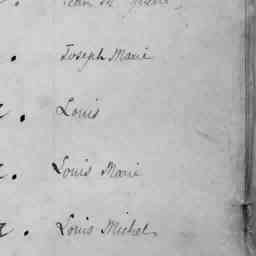 Jean
Joseph Marie
Louis
Louis Marie
Louis Michel